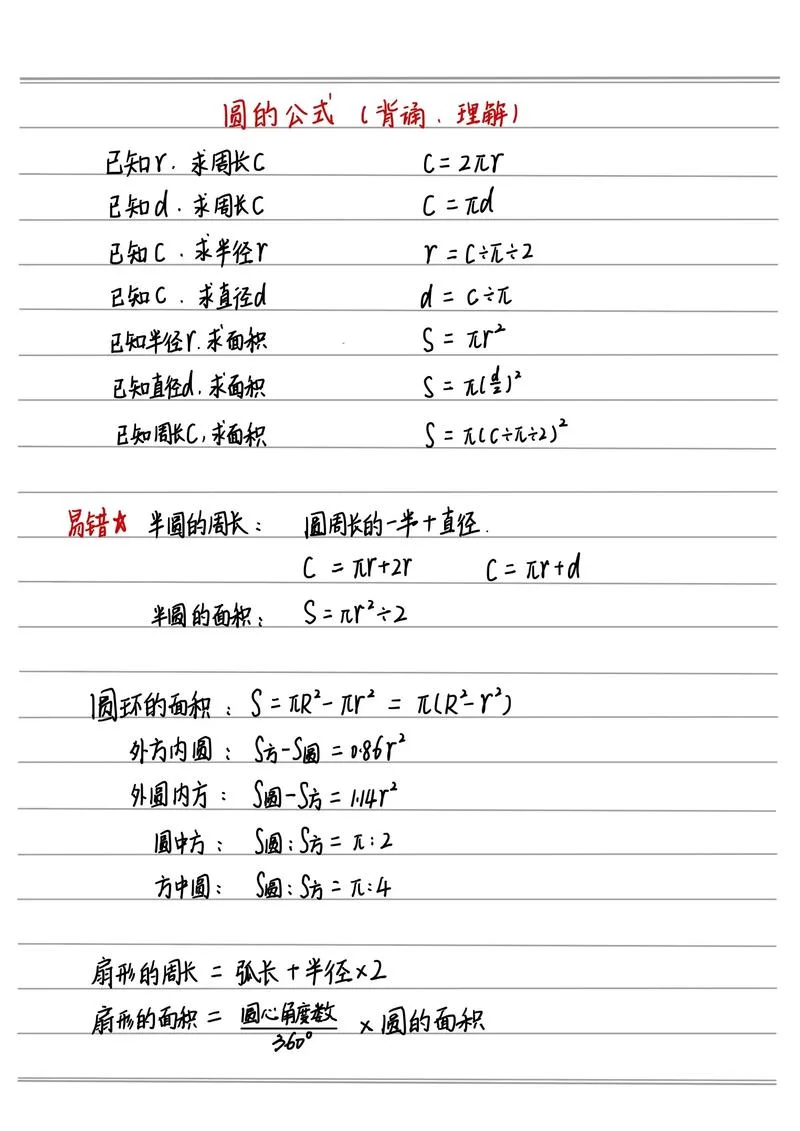 圆的公式（背诵、理解）
已知r、求周长C C=2πr
已知d、求周长C C=πd
已知C、求半径r r=C÷π÷2
已知C、求直径d d=C÷π
已知半径r、求面积 S=πr²
已知直径d，求面积 S=π(d/2)²
已知周长C，求面积 S=π(C÷π÷2)²
易错☆ 半圆的周长： 圆周长的一半+直径.
C=πr+2r C=πr+d
半圆的面积： S=πr²÷2
圆环的面积：S=πR²-πr²=π(R²-r²)
外方内圆：S方-S圆=0.86r²
外圆内方：S圆-S方=1.14r²
圆中方：S圆:S方=π:2
方中圆：S圆:S方=π:4
扇形的周长=弧长+半径×2
扇形的面积=圆心角度数/360°×圆的面积